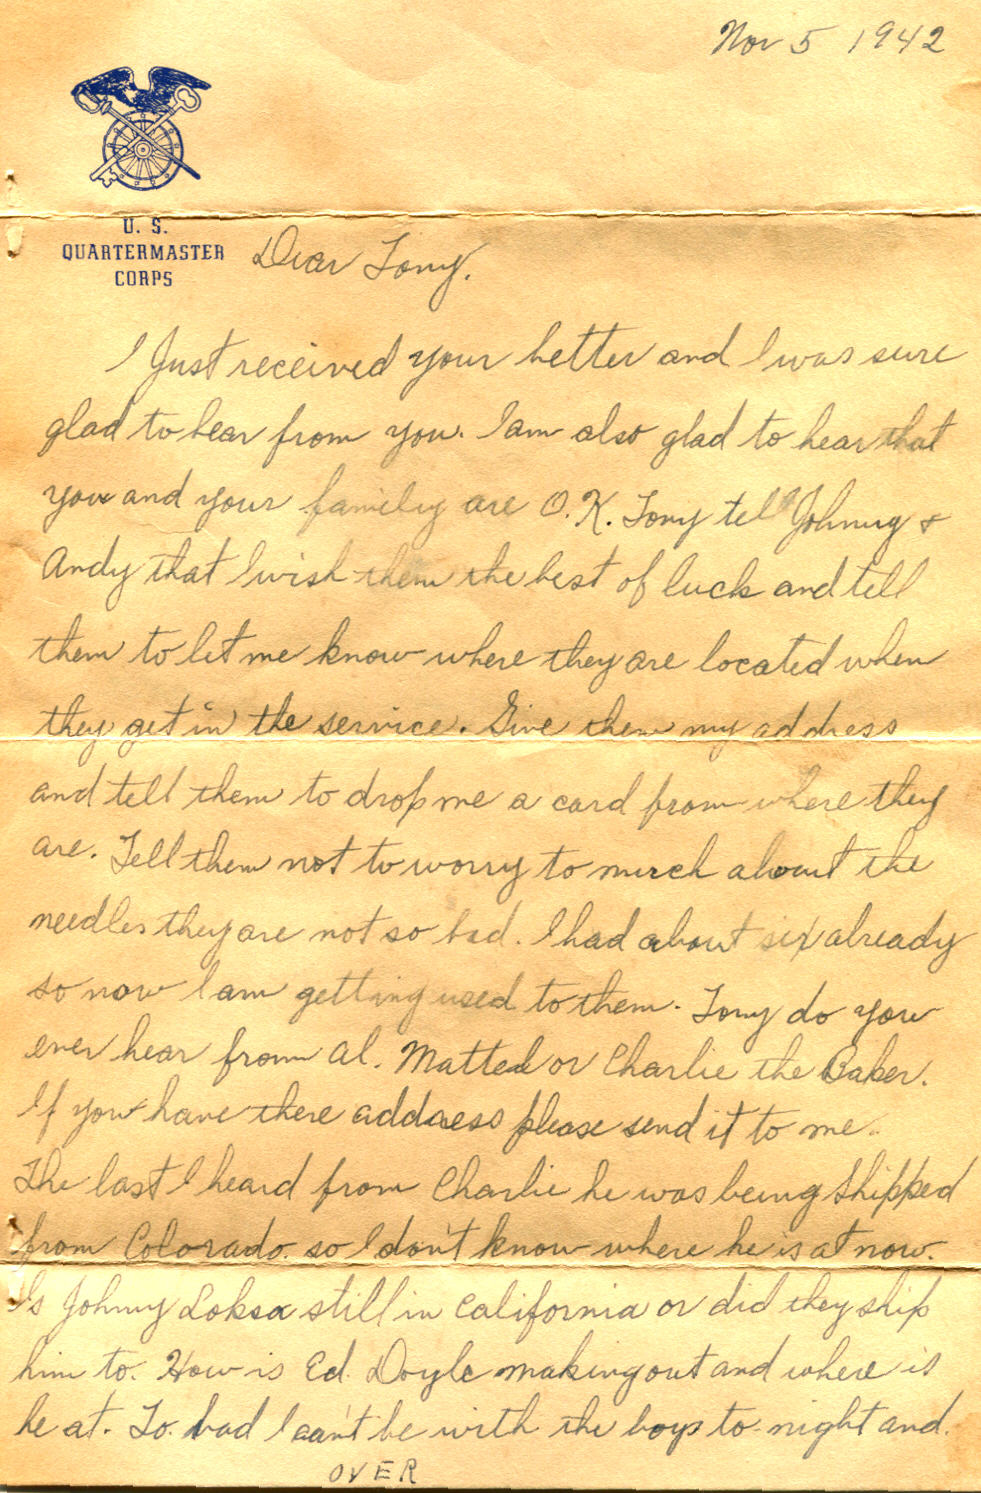 Nov 5 1942
U. S.
QUARTERMASTER
CORPS
Dear Tony.
I Just received your letter and I was sure
glad to hear from you. I am also glad to hear that
you and your family are O.K. Tony tell Johnny &
Andy that I wish them the best of luck and tell
them to let me know where they are located when
they get in the service. Give them my address
and tell them to drop me a card from where they
are. Tell them not to worry to much about the
needles they are not so bad. I had about six already
so now I am getting used to them. Tony do you
ever hear from Al. or Charlie the Baker.
If you have there address please send it to me.
The last I heard from Charlie he was being Shipped
from Colorado. so I don't know where he is at now.
Is Johnny Loksa still in California or did they ship
him to. How is Ed. Doyle making out and where is
he at. To. bad I can't be with the boys to-night and.
OVER